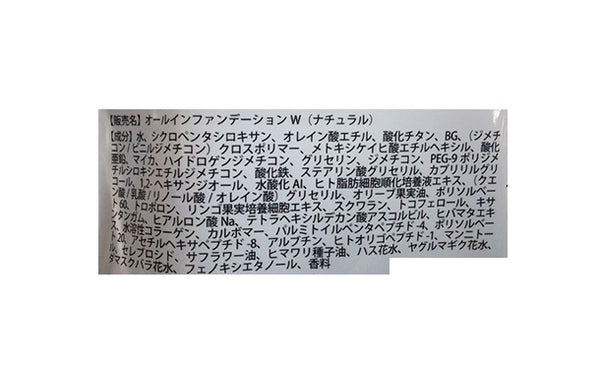 【販売名】オールインファンデーション W（ナチュラル）
【成分】水、シクロペンタシロキサン、オレイン酸エチル、酸化チタン、BG、（ジメチ
コン/ビニルジメチコン）クロスポリマー、メトキシケイヒ酸エチルヘキシル、酸化
亜鉛、マイカ、ハイドロゲンジメチコン、グリセリン、ジメチコン、PEG-9 ポリジメ
チルシロキシエチルジメチコン、酸化鉄、ステアリン酸グリセリル、カプリリルグリ
コール、1,2-ヘキサンジオール、水酸化 Al、ヒト脂肪細胞順化培養液エキス、（クエ
ン酸/乳酸/リノール酸/オレイン酸）グリセリル、オリーブ果実油、ポリソルベー
ト 60、トロポロン、リンゴ果実培養細胞エキス、スクワラン、トコフェロール、キサ
ンタンガム、ヒアルロン酸 Na、テトラヘキシルデカン酸アスコルビル、ヒバマタエキ
ス、水溶性コラーゲン、カルボマー、パルミトイルペンタペプチド -4、ポリソルベー
ト 20、アセチルヘキサペプチド -8、アルブチン、ヒトオリゴペプチド -1、マンニトー
ル、セレブロシド、サフラワー油、ヒマワリ種子油、ハス花水、ヤグルマギク花水、
ダマスクバラ花水、フェノキシエタノール、香料